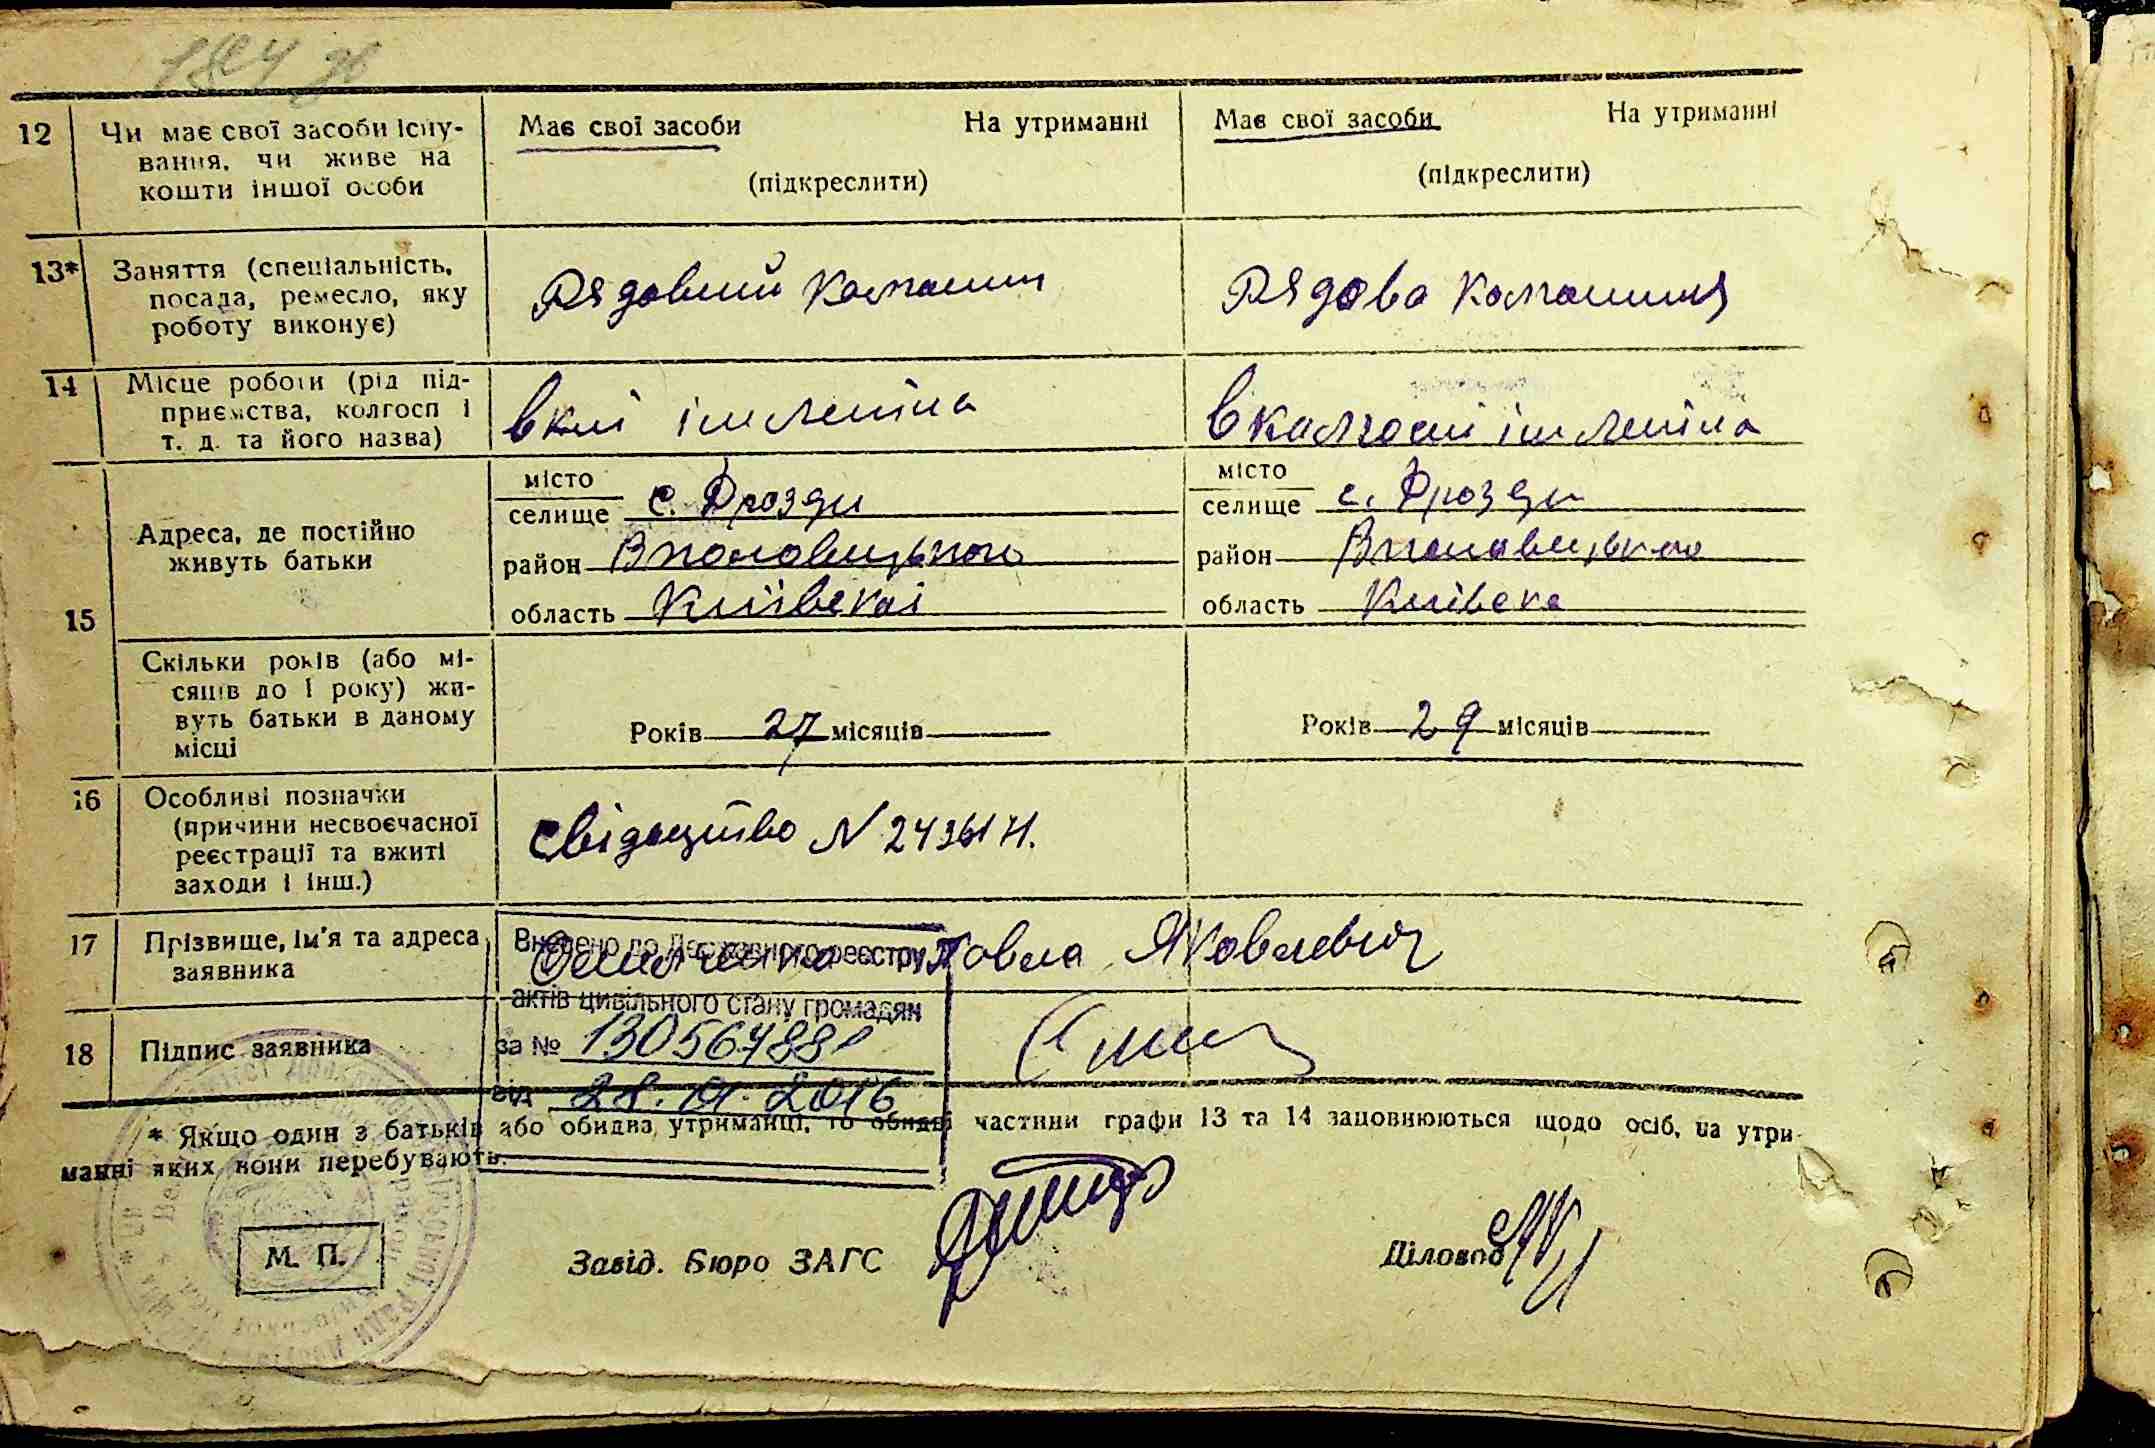 12 Чи має свої засоби існу-
вання, чи живе на
кошти іншої особи
Має свої засоби На утриманні
(підкреслити)
Має свої засоби На утриманні
(підкреслити)
13* Заняття (спеціальність,
посада, ремесло, яку
роботу виконує)
Рядовий колгосник
Рядова колгосниця
14 Місце роботи (рід під-
приємства, колгосп і
т. д. та його назва)
ім Леніна
в колгоспі ім Леніна
15 Адреса, де постійно
живуть батьки
місто
селище с. Дрозди
район
область Київської
місто
селище с. Дрозди
район
область Київська
Скільки років (або мі-
сяців до 1 року) жи-
вуть батьки в даному
місці
Років 27 місяців
Років 29 місяців
16 Особливі позначки
(причини несвоєчасної
реєстрації та вжиті
заходи і інш.)
свідоцтво N
17 Прізвище, ім'я та адреса
заявника
Павла Яковлевич
Внесено до Державного реєстру
актів цивільного стану громадян
за №
від 2016
18 Підпис заявника
* Якщо один з батьків або обидва утриманці, то обидві частини графи 13 та 14 заповнюються щодо осіб, на утри-
манні яких вони перебувають.
М. П.
Завід. Бюро ЗАГС
Діловод